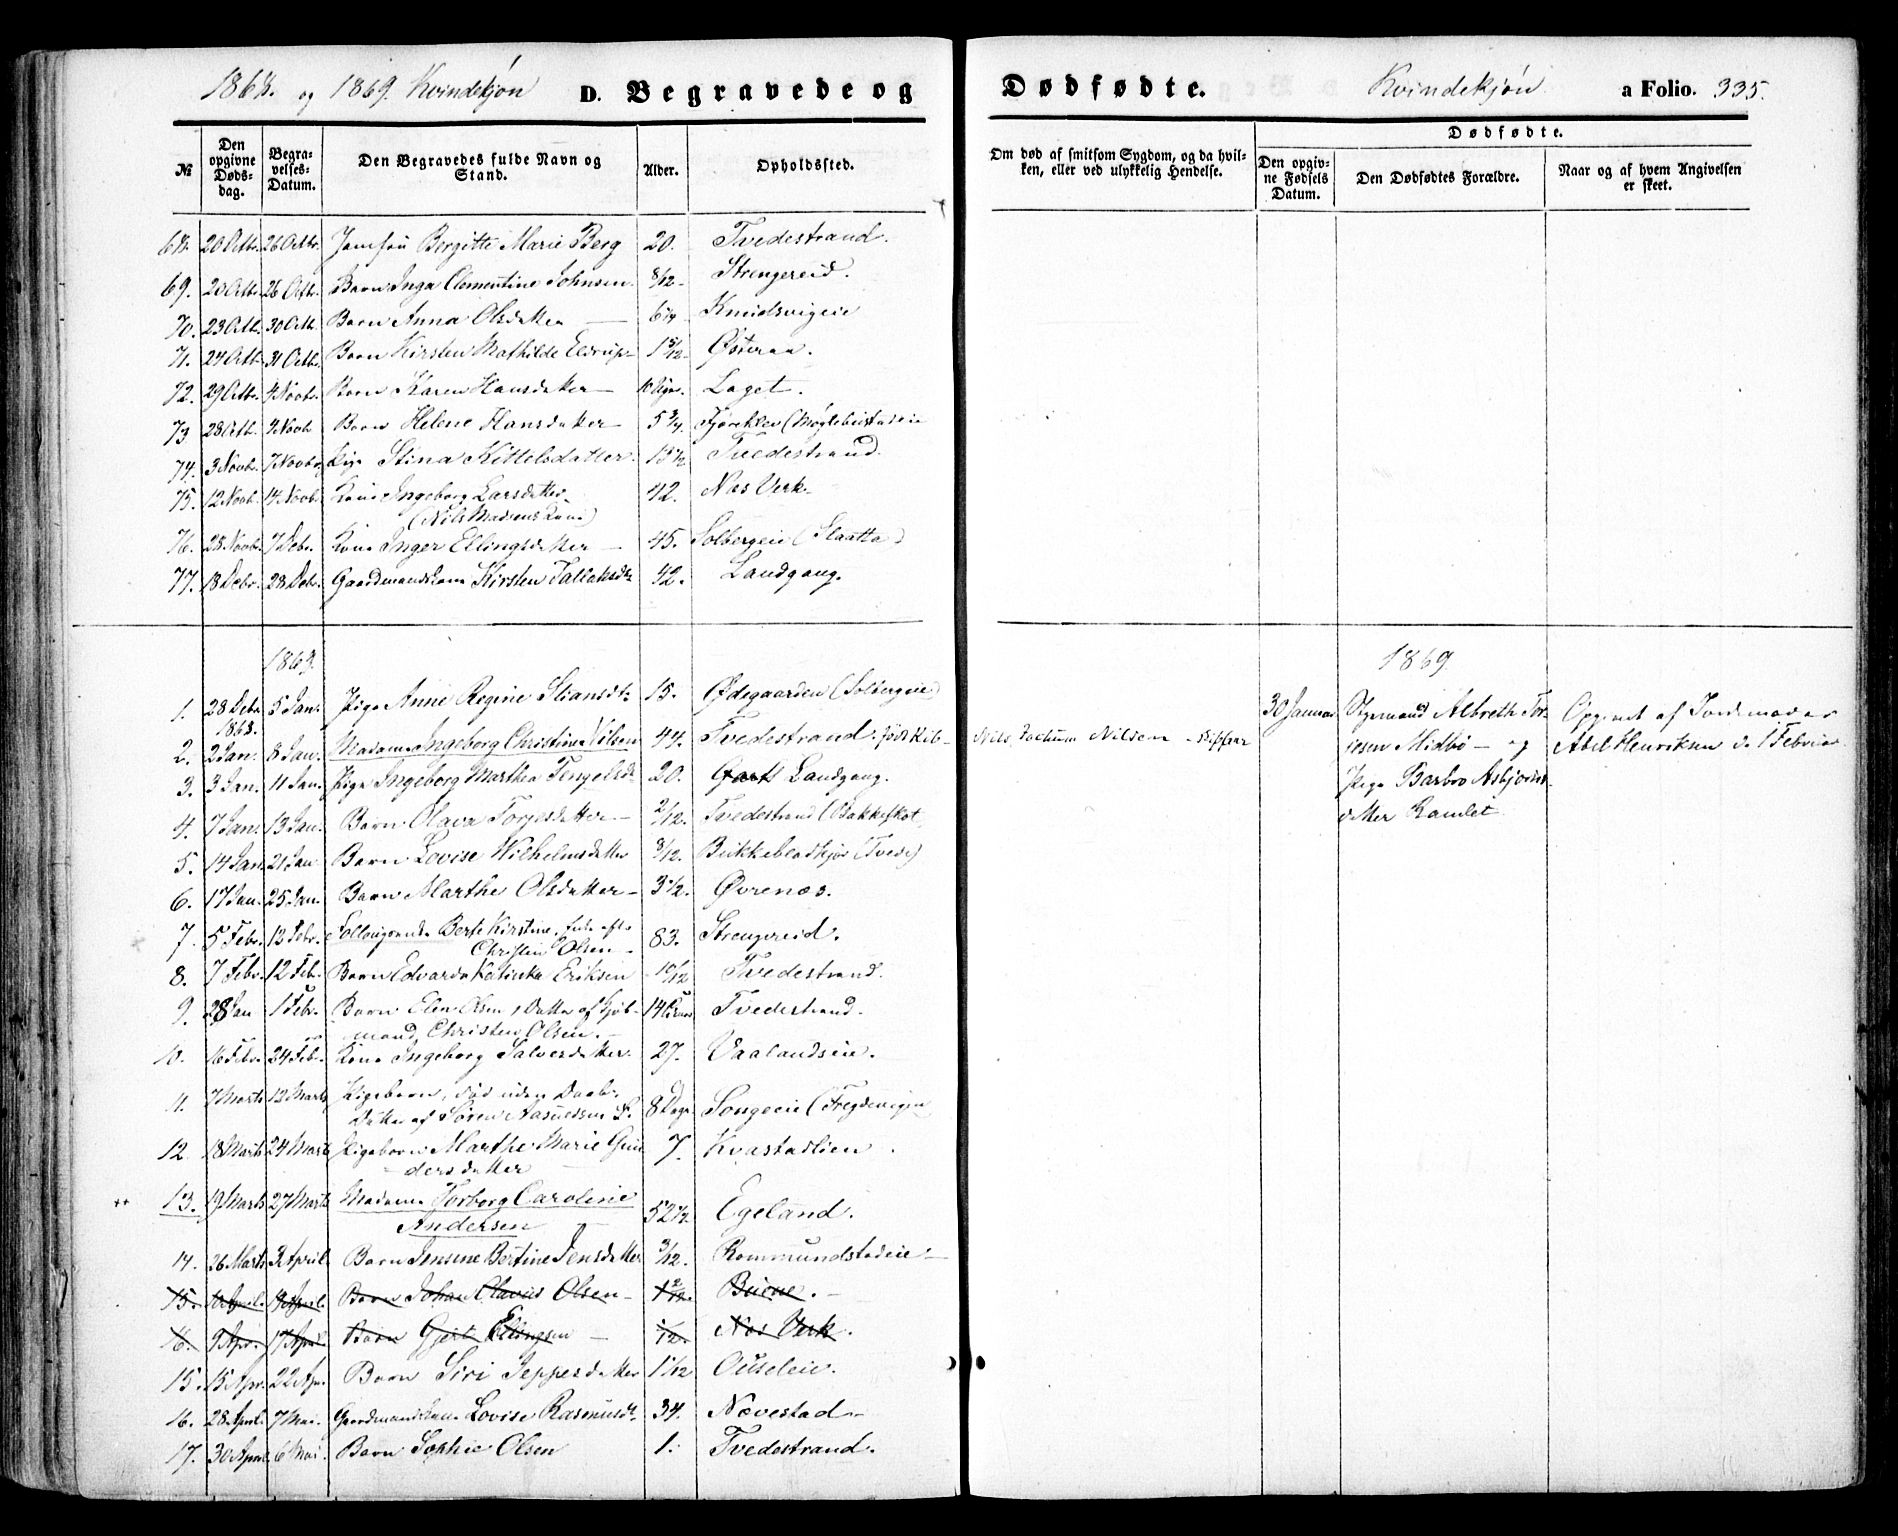 1868. og 1869. Kvindekjøn D. Begravede og Dødfødte. Kvindekjøn. a Folio. 335.
№ Den opgivne Dødsdag. Begravelses-Datum. Den Begravedes fulde Navn og Stand. Alder. Opholdssted. Om død af smitsom Sygdom, og da hvilken, eller ved ulykkelig Hendelse. Dødfødte. Den opgivne Fødsels Datum. Den Dødfødtes Forældre. Naar og af hvem Angivelsen er skeet.
68. 20 Octbr. 26 Octbr. Jomfru Bergitte Marie Berg 20. Tvedestrand.
69. 20 Octbr. 26 Octbr. Barn Inga Clementine Johnsen 8/12 Strengereid.
70. 23 Octb. 30 Octb. Barn Anna Olsdatter Knudsvigeie
71. 24 Octb. 31 Octbr. Barn Kirsten Mathilde Eldrup 1 5/12 Østeraa.
72. 29 Octbr. 4 Novbr. Barn Karen Hansdatter Laget.
73 28 Octb. 4 Novb. Barn Helene Hansdatter 5 3/4. Fjæreklev (Møglebustadeie
74. 3 Novbr. 7 Novbr. Pige Stina Kittelsdatter. 15 1/2 Tvedestrand.
75. 12 Novb. 14 Novb. Kone Ingeborg Larsdatter 42. Nas Verk
(Nils Madsens Kone)
76. 28 Novbr. 7 Debr. Kone Inger Ellingsdatter 45. Solbergeie (Slaatta)
77. 18 Debr. 28 Debr. Gaardmandskone Kirsten Tallaksdr 42. Landgang.
1869. 1869
1. 28 Debr. 1868. 5 Jan. Pige Anne Regine Stiansdr 15. Ødegaarden (Solbergeie)
2. 2 Jan. 8 Jan. Madame Ingeborg Christine Nilsen 44. Tvedestrand. Nils Jochum Nilsen
30 Januar Styrmand Albreth Torjesen Midbø og Pige Barbro Asbjørnsdatter Ramlet
Opgivet af Jordemoder Abel Henriksen d. 1 Februar
3. 3 Jan. 11 Jan. Pige Ingeborg Marthea Tengelsdr 20. Landgang.
4. 7 Jan. 13 Jan. Barn Olava Torjesdatter 2/12. Tvedestrand (Bakkeskot
5. 14 Jan. 21 Jan Barn Lovise Wilhelmsdatter 3/12. Bukkebladkjør (Tvede)
6. 17 Jan. 25 Jan. Barn Marthe Olsdatter 3 1/2. Øvrenes.
7. 5 Febr. 13 Febr. Berte Kirstine, Enke efter 83. Strengereid.
Christen Olsen
8. 7 Febr. 12 Feb. Barn Edvarda Katinka Eriksen 10/12 Tvedestrand.
9. 28 Jan 1 Febr. Barn Elen Olsen, Datter af Kjøb- 14 Tvedestrand.
mand, Christen Olsen.
10. 16 Febr. 24 Feb. Kone Ingeborg Salvesdatter. 27. Vaalandseie.
11. 7 Marts 13 Marts Pigebarn, død uden Daab. 8 Dage Songeeie (Fregdevigen
Datter af Søren Aanundsen
12 18 Marts 24 Marts Pigebarn Marthe Marie Gun- 7. Kvastadlien.
dersdatter
13. 19 Marts 27 Marts Madame Torborg Caroline 52 1/2. Egeland.
Andersen
14. 26 Marts 3 April Barn Jensine Bertine Jensdatter 3/12. Rommundstadeie.
15. 10 April. Barn Johan Olavus Olsen Buene.
16. 9 Apr. 17 April Barn Gjert Ellingsen Nas Verk.
15. 15 Apr. 22 Apr. Barn Siri Jeppesdatter 1 1/12 Ouseleie.
16. 28 April. 7 Mai. Gaardmandskone Lovise Rasmusdr. 34. Nævestad
17. 30 April 6 Mai. Barn Sophie Olsen 1. Tvedestrand.